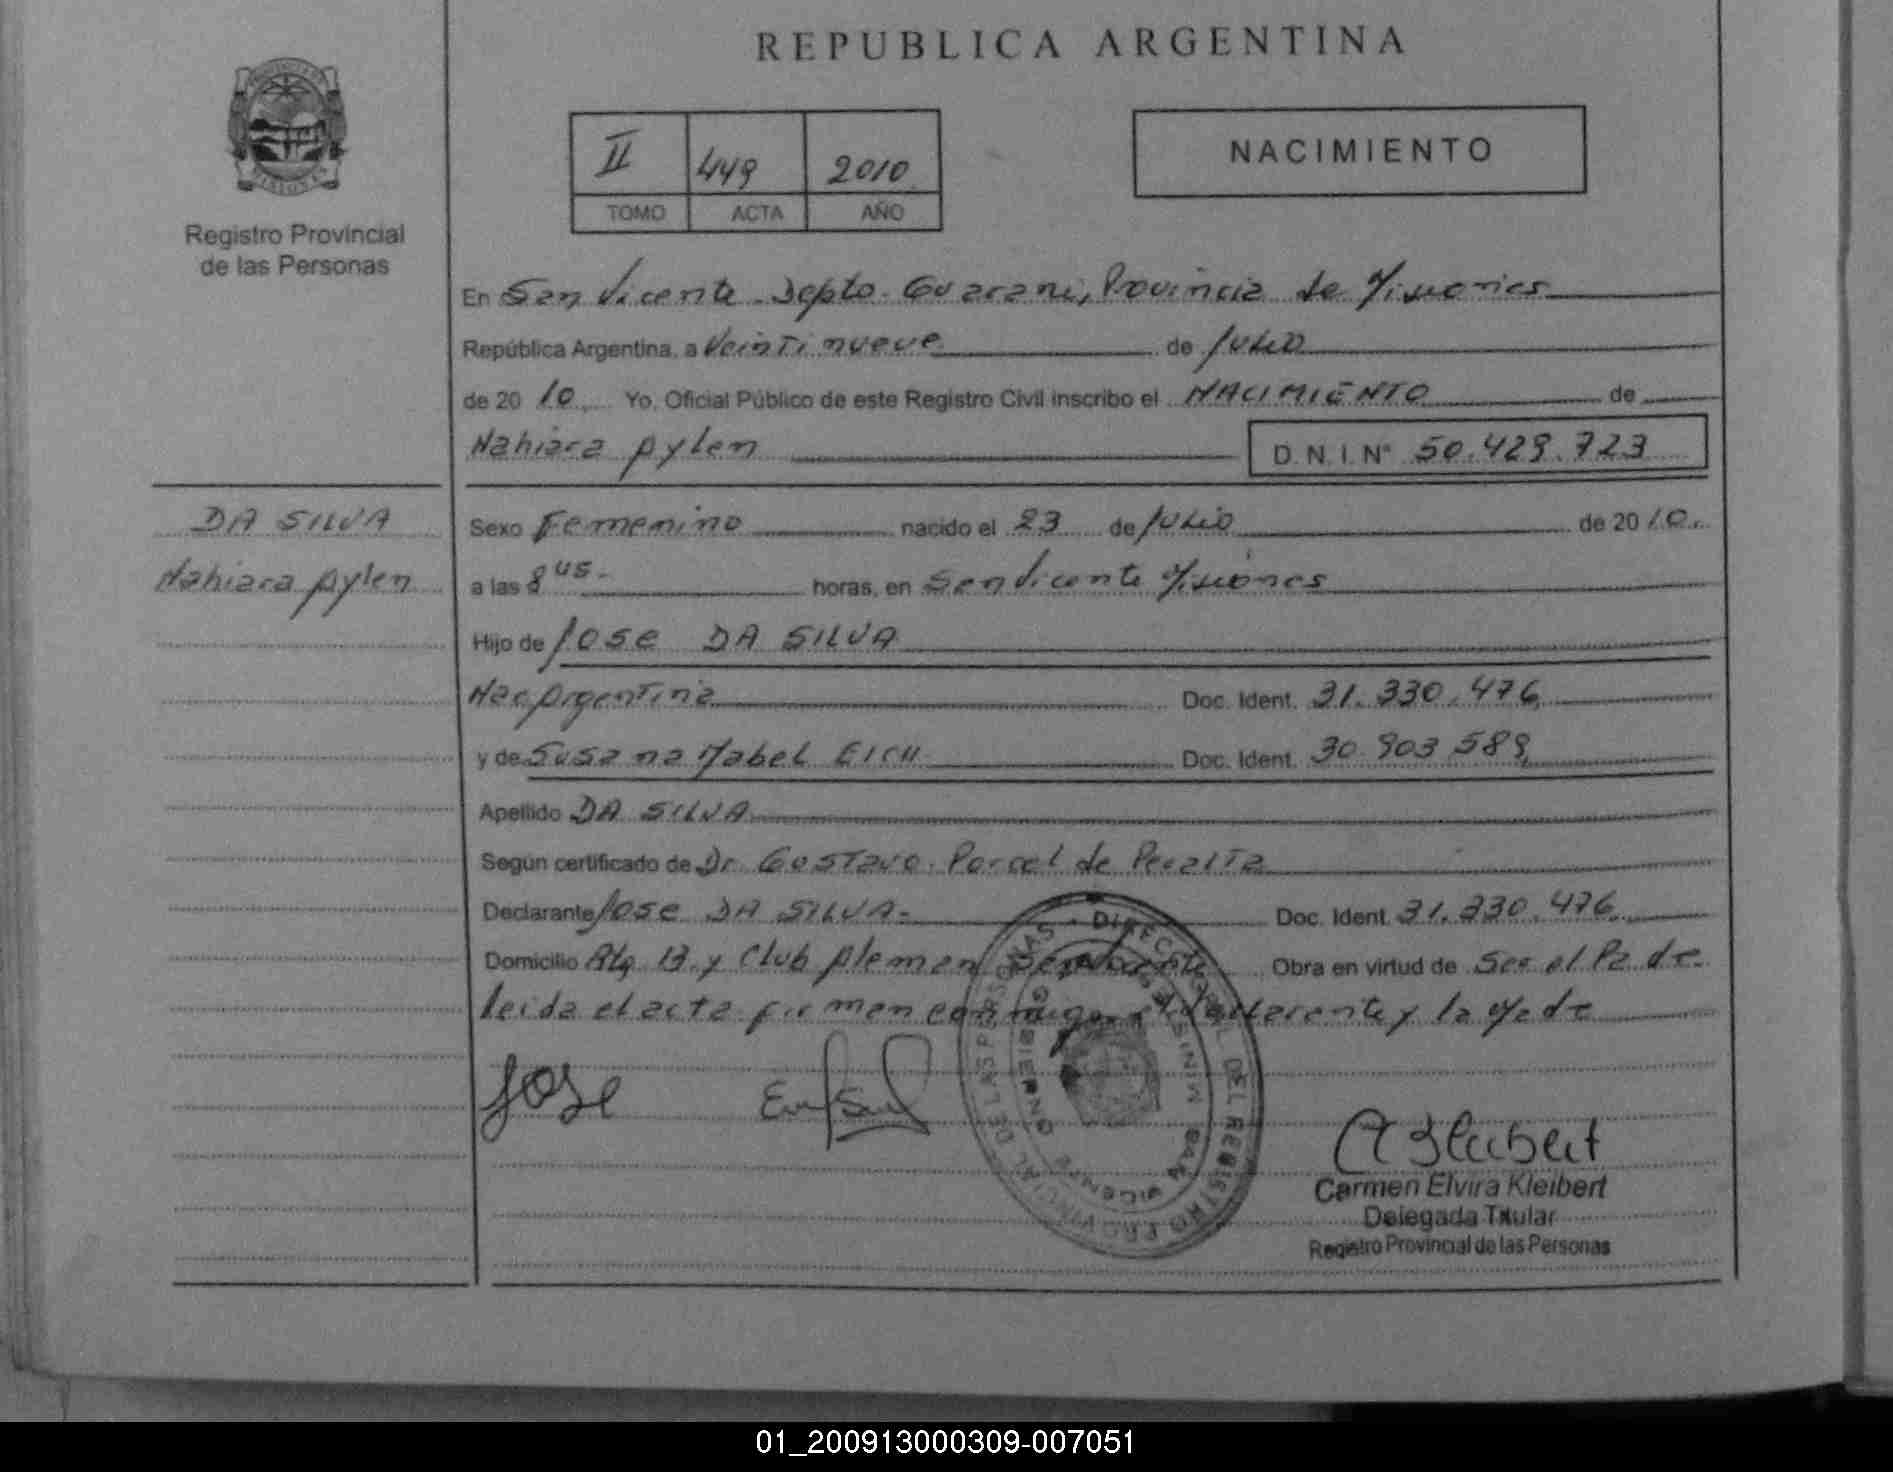 REPUBLICA ARGENTINA
II 449 2010
TOMO ACTA AÑO
NACIMIENTO
Registro Provincial
de las Personas
En San Vicente - Depto. Guarani, Provincia de Misiones
República Argentina, a Veintinueve de Julio
de 2010 Yo, Oficial Público de este Registro Civil inscribo el NACIMIENTO de
Nahiara Aylen D. N. I. Nº 50.429.723
DA SILVA
Nahiara Aylen
Sexo Femenino nacido el 23 de Julio de 2010.
a las 8 45 - horas, en San Vicente Misiones
Hijo de Jose DA SILVA
Nac Argentina Doc. Ident. 31.330.476
y de Susana Mabel EICH Doc. Ident. 30.903.589
Apellido DA SILVA
Según certificado de Dr. Gustavo Porcel de Peralta
Declarante Jose DA SILVA- Doc. Ident. 31.330.476
Domicilio Rta 13 y Club Aleman San Vicente Obra en virtud de Ser el Padre
leida el acta firman conmigo el declarante y la Madre
Jose
Carmen Elvira Kleibert
Delegada Titular
Registro Provincial de las Personas
DIRECCION GRAL. DEL REGISTRO PROVINCIAL DE LAS PERSONAS
01_200913000309-007051